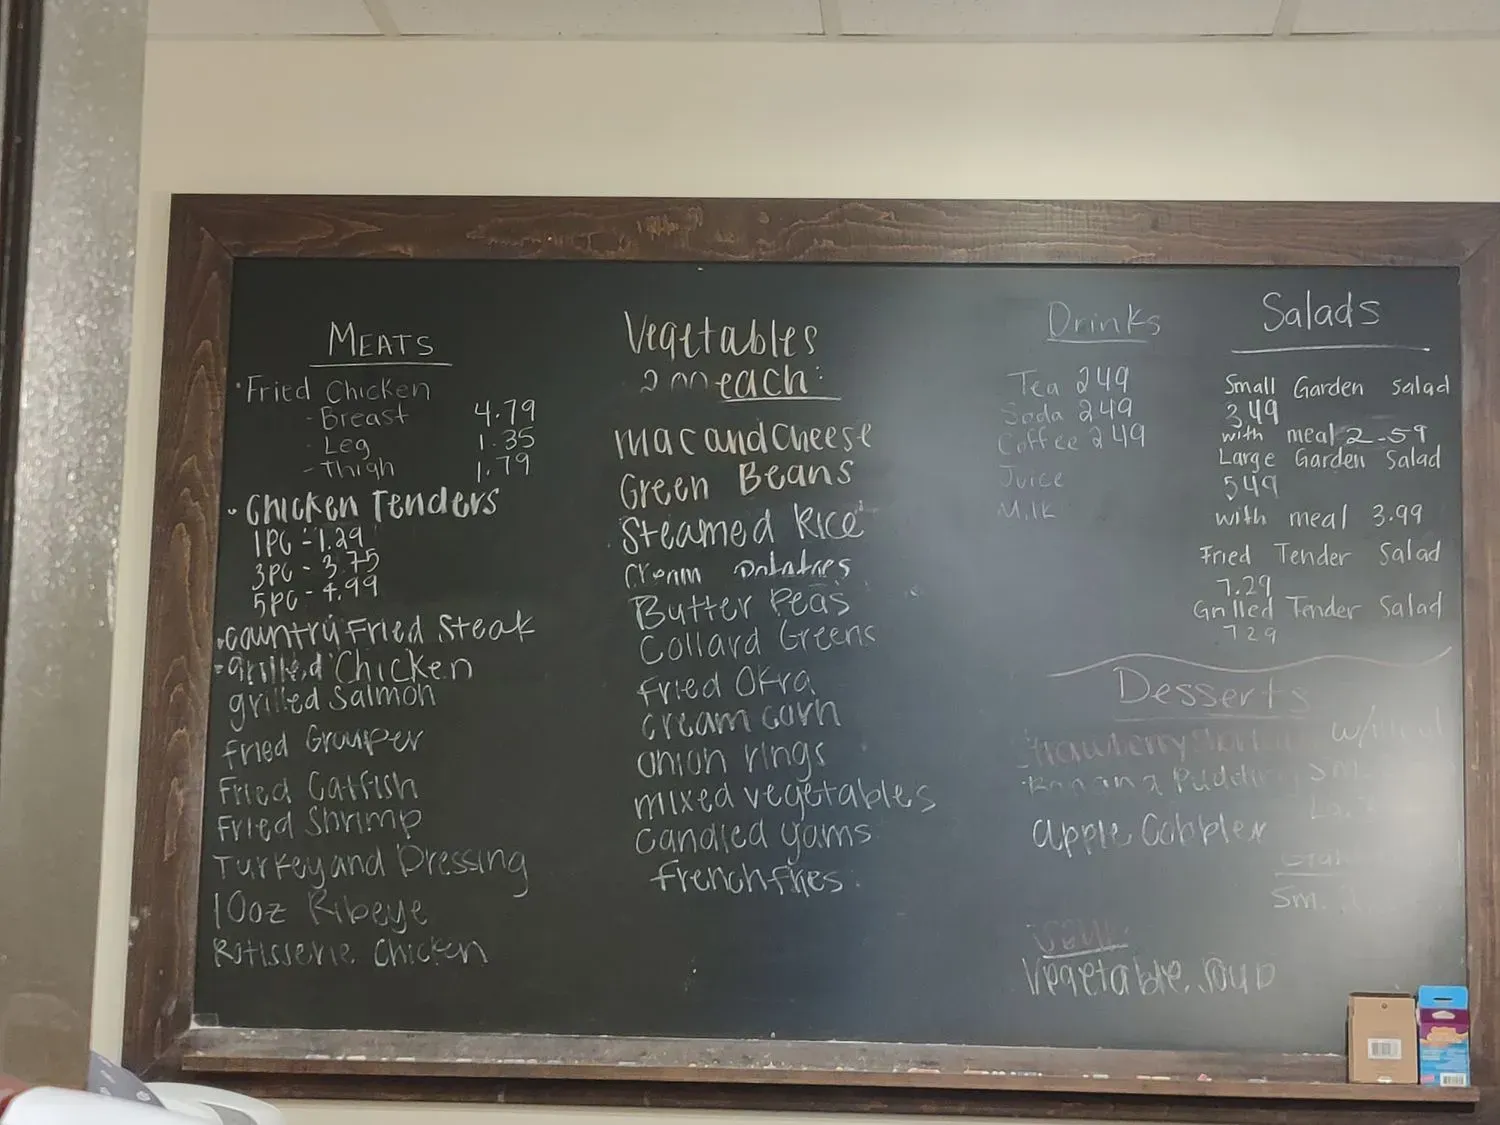 MEATS
• Fried Chicken
- Breast 4.79
- Leg 1.35
- Thigh 1.79
• Chicken Tenders
1PC - 1.29
3PC - 3.75
5PC - 4.99
• Country Fried Steak
• grilled Chicken
grilled Salmon
Fried Grouper
Fried Catfish
Fried Shrimp
Turkey and Dressing
10oz Ribeye
Rotisserie Chicken
Vegetables
2.00 each:
mac and cheese
Green Beans
Steamed Rice
Cream Potatoes
Butter Peas
Collard Greens
Fried Okra
cream corn
onion rings
mixed vegetables
candied yams
french fries
Drinks
Tea 2 49
Soda 2 49
Coffee 2 49
Juice
Milk
Salads
Small Garden Salad
3 49
with meal 2.59
Large Garden Salad
5 49
with meal 3.99
Fried Tender Salad
7.29
Grilled Tender Salad
7 29
Desserts
Strawberry
Banana Pudding Sm.
apple Cobbler
Sm.
Vegetable Soup